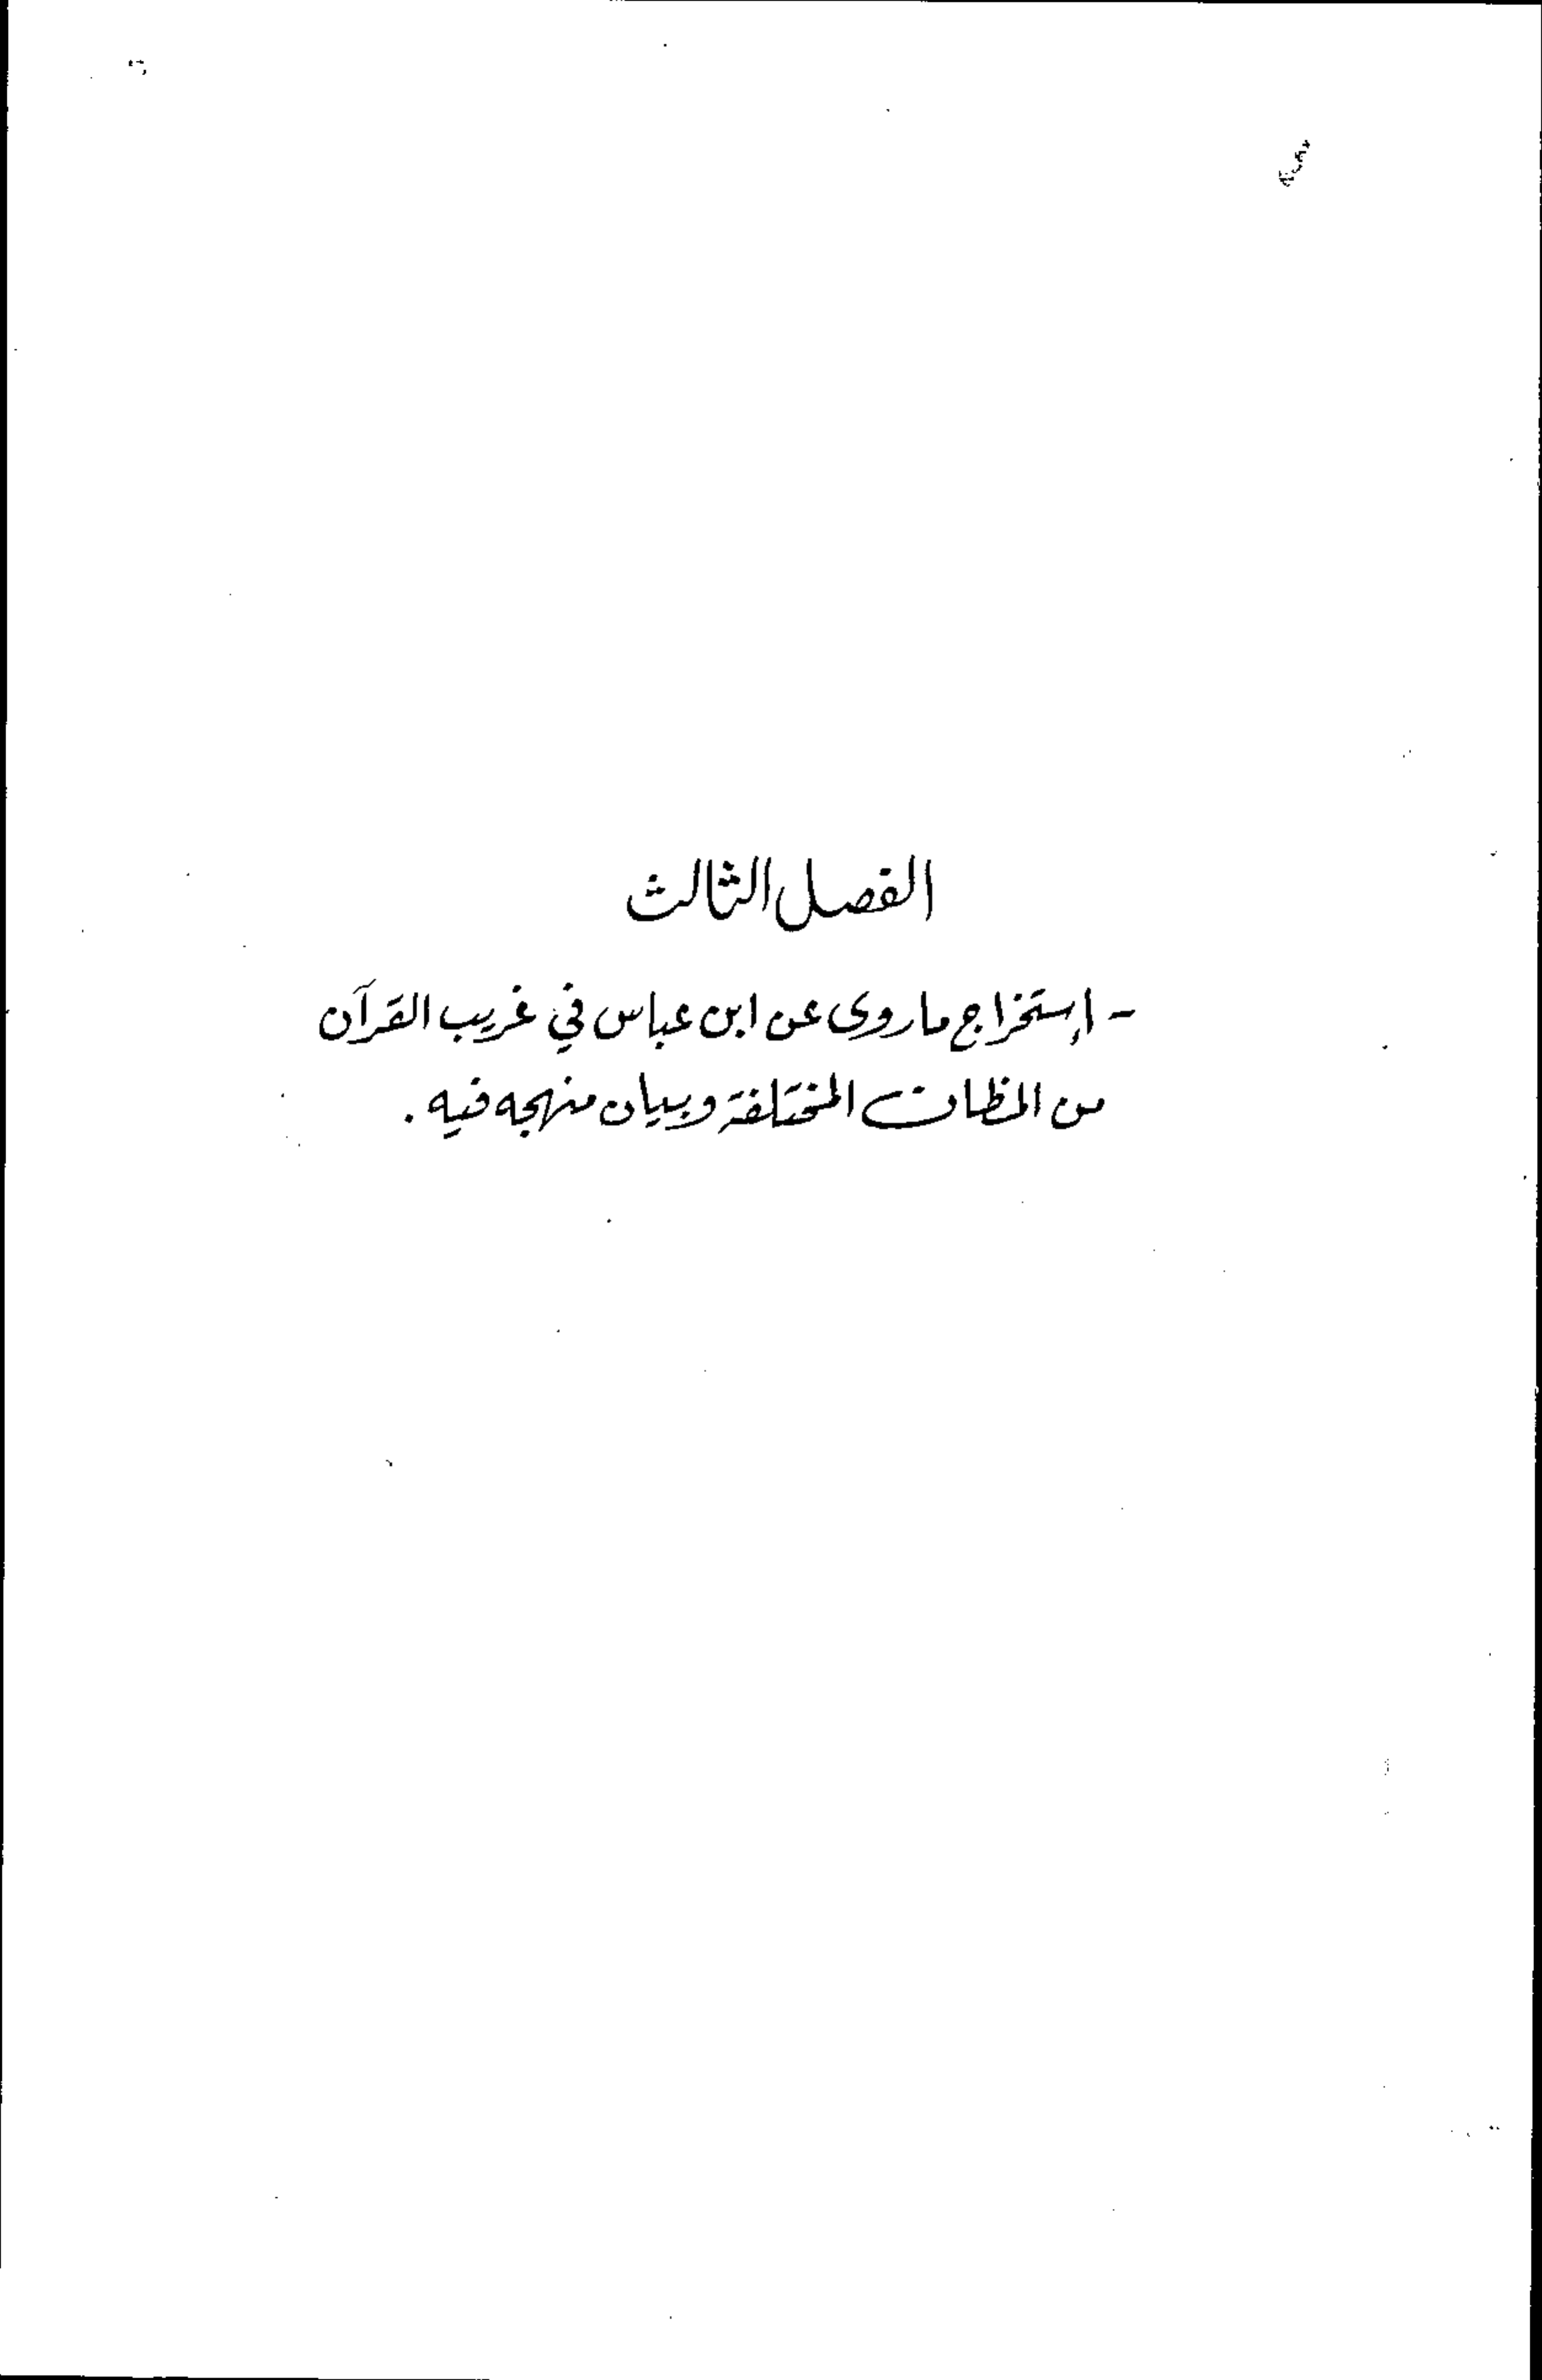 الفصل الثالث
- إستخراج ما روى عن ابن عباس في غريب القرآن
من المظات المختلفة وبيان منهجه فيه .